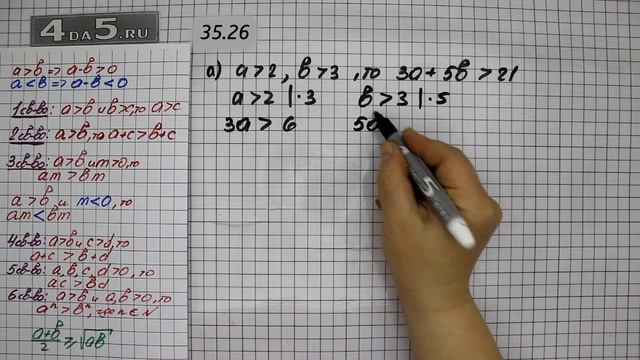 4DA5.RU
35.26
a>b => a-b>0
a<b => a-b<0
1 св-во: a>b и b>c, то a>c
2 св-во: a>b, то a+c>b+c
3 св-во: a>b и m>0, то
am>bm
a>b и m<0, то
am<bm
4 св-во: a>b и c>d, то
a+c>b+d
5 св-во: a,b,c,d>0, то
ac>bd
6 св-во: a>b и a,b>0, то
aⁿ>bⁿ, где n∈N
(a+b)/2 ≥ √ab
а) a>2, b>3, то 3a+5b>21
a>2 |·3 b>3 |·5
3a>6 5b
5